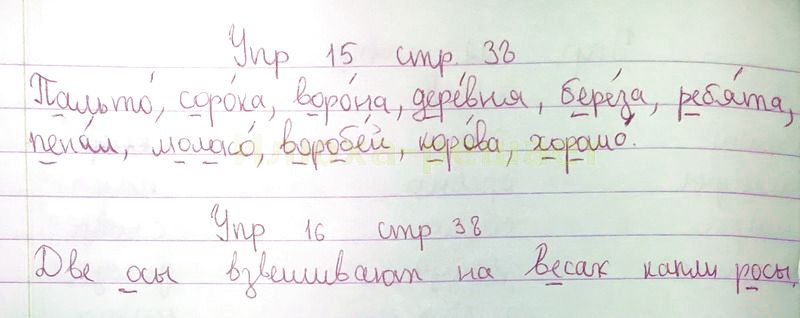 Упр 15 стр. 38
Пальто́, соро́ка, воро́на, дере́вня, берёза, ребя́та,
пена́л, молоко́, воробе́й, коро́ва, хорошо́.
Упр 16 стр 38
Две осы взвешивают на весах капли росы.